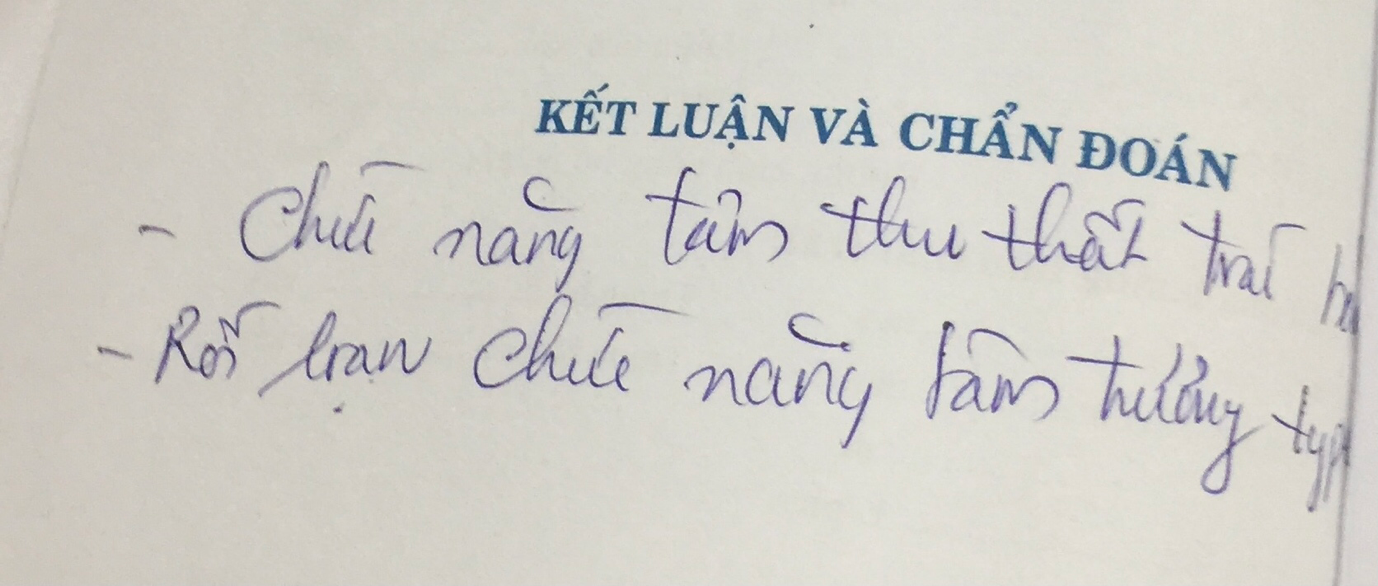 KẾT LUẬN VÀ CHẨN ĐOÁN
- Chức năng tâm thu thất trái
- Rối loạn chức năng tâm trương